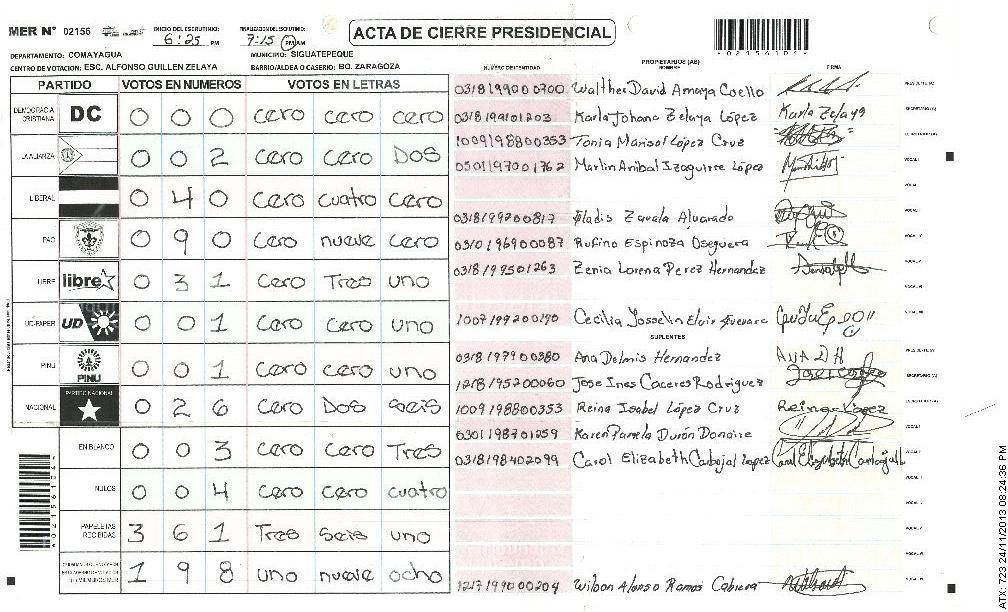 MER N° 02156 INICIO DEL ESCRUTINIO: 6:25 PM FINALIZACION DEL ESCRUTINIO: 7:15 PM AM ACTA DE CIERRE PRESIDENCIAL
DEPARTAMENTO: COMAYAGUA MUNICIPIO: SIGUATEPEQUE
CENTRO DE VOTACION: ESC. ALFONSO GUILLEN ZELAYA BARRIO/ALDEA O CASERIO: BO. ZARAGOZA
*02156104*
PARTIDO VOTOS EN NUMEROS VOTOS EN LETRAS
DEMOCRACIA CRISTIANA DC 0 0 0 cero cero cero
LA ALIANZA 0 0 2 cero cero Dos
LIBERAL 0 4 0 cero cuatro cero
PAC 0 9 0 cero nueve cero
LIBRE libre 0 3 1 cero Tres uno
UD-FAPER UD 0 0 1 cero cero uno
PINU PINU 0 0 1 cero cero uno
NACIONAL PARTIDO NACIONAL 0 2 6 cero Dos seis
EN BLANCO 0 0 3 cero cero Tres
NULOS 0 0 4 cero cero cuatro
PAPELETAS RECIBIDAS 3 6 1 Tres seis uno
1 9 8 uno nueve ocho
NÚMERO DE IDENTIDAD PROPIETARIOS (AS) NOMBRE FIRMA
0318199000700 Walther David Amaya Coello PRESIDENTE (A)
0318199101203 Karla Johana Zelaya López Karla Zelaya SECRETARIO (A)
1009198800353 Tonia Marisol López Cruz ESCRUTADOR (A)
0501197001762 Marlin Anibal Izaguirre López VOCAL I
0318199200817 Gladis Zavala Alvarado
0301196900087 Rufino Espinoza Oseguera
0318199501263 Zenia Lorena Perez Hernandez
1007199200190 Cecilia Josselin Elvir Guevara
SUPLENTES
0318197900380 Ana Delmis Hernandez ANA D H
1218195200060 Jose Ines Caceres Rodriguez SECRETARIO (A)
1009198800353 Reina Isabel López Cruz Reina López ESCRUTADOR (A)
0301198701259 Karen Pamela Durón Donaire
0318198402099 Carol Elizabeth Carbajal Lopez Carol Elizabeth Carbajal L
1217199000204 Wilson Alonso Ramos Cabrera
*02156104*
ATX-723 24/11/2013 08:24:36 PM